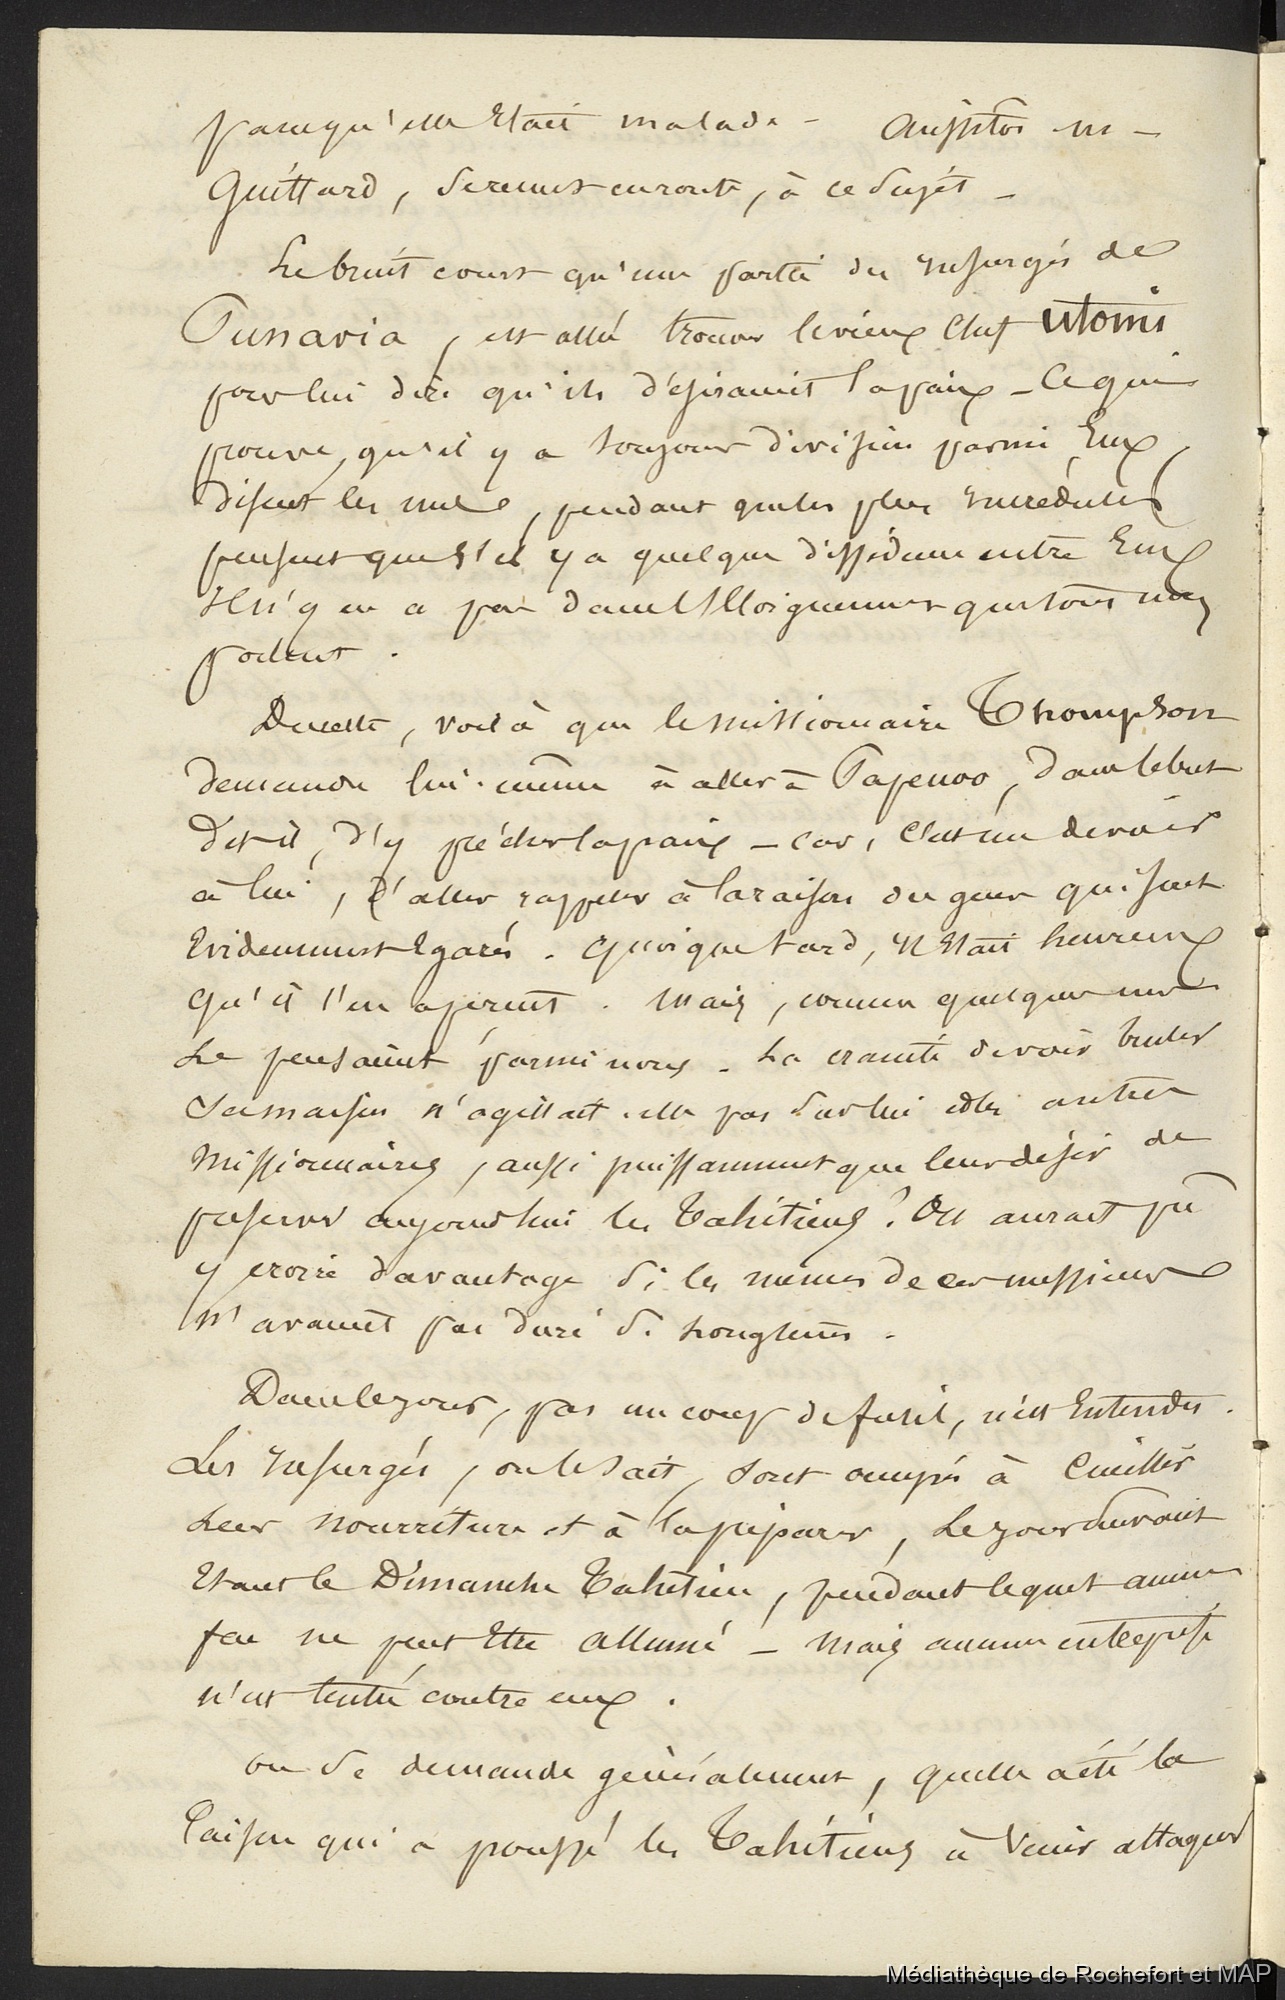 parcequ'elle Etait malade – Aussitôt m –
Guittard, se remet en route, à ce sujet –
Le bruit court qu'une partie des insurgés de
Punavia, est allé trouver le vieux chef utomi
pour lui dire qu'ils désiraient la paix – Ce qui
prouve, qu'il y a toujours division parmi Eux,
disent les uns, pendant que les plus incrédules
pensent que s'il y a quelque dissidence entre Eux
Il n'y en a pas dans l'Eloignement que tous nous
portent.
De cette, voilà que le missionnaire Thompson
demande lui-même à aller à Papenoo, dans le but
dit-il, d'y prêcher la paix – car, c'est un devoir
à lui, d'aller rappeler à la raison des gens qui sont
Evidemment Egarés. Quoique tard, il Etait heureux
qu'il s'en aperçut. Mais, comme quelques uns
Le pensaient parmi nous. La crainte de voir bruler
Sa maison n'agissait-elle pas sur lui et les autres
Missionnaires, aussi puissamment que leur désir de
préserver aujourd'hui les Tahitiens? On aurait pû
y croire davantage si les menées de ces messieurs
n'avaient pas duré si longtems.
Dans le jour, pas un coup de fusil, n'est Entendu.
Les insurgés, on le sait, sont occupés à Cueillir
Leur nourriture et à la préparer, Le jour suivant
Etant le Dimanche Tahitien, pendant lequel aucun
feu ne peut Etre allumé – Mais aucune entreprise
n'est tentée contre eux.
on se demande généralement, quelle a été la
raison qui a poussé les Tahitiens à venir attaquer
Médiathèque de Rochefort et MAP